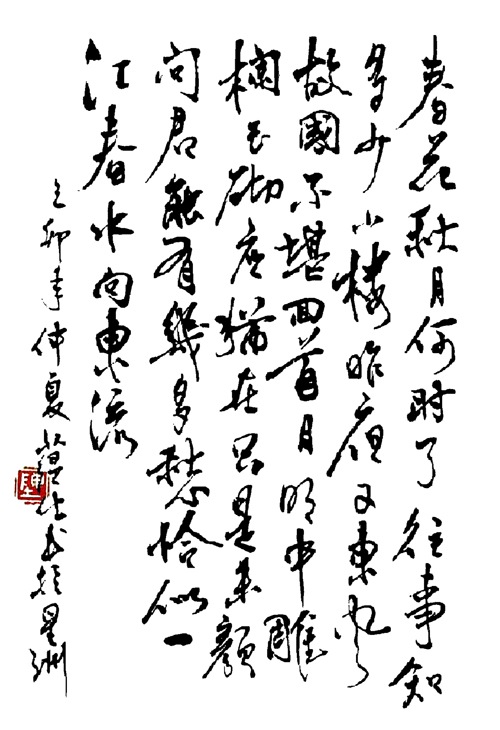 春花秋月何时了往事知
多少小楼昨夜又東風
故國不堪回首月明中雕
欄玉砌应猶在只是朱顔
问君能有幾多愁恰似一
江春水向東流
乙卯年仲夏书於星洲